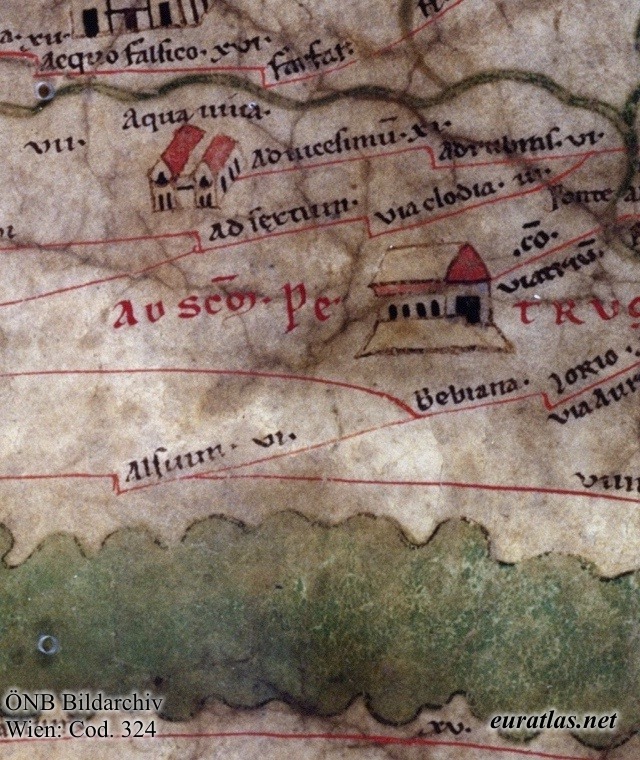 a. xii.
Aequo falsico. xvi.
farfar.
Aqua viva.
vii.
Ad vicesimū. xi.
ad rubras. vi.
Ad sextum.
via clodia. iii.
Ponte
.cō.
viatriū.
Av scōs. Pe
TRUS
Bebiana.
lorio
via Aur
Alsium. vi.
viiii
xv.
ÖNB Bildarchiv
Wien: Cod. 324
euratlas.net